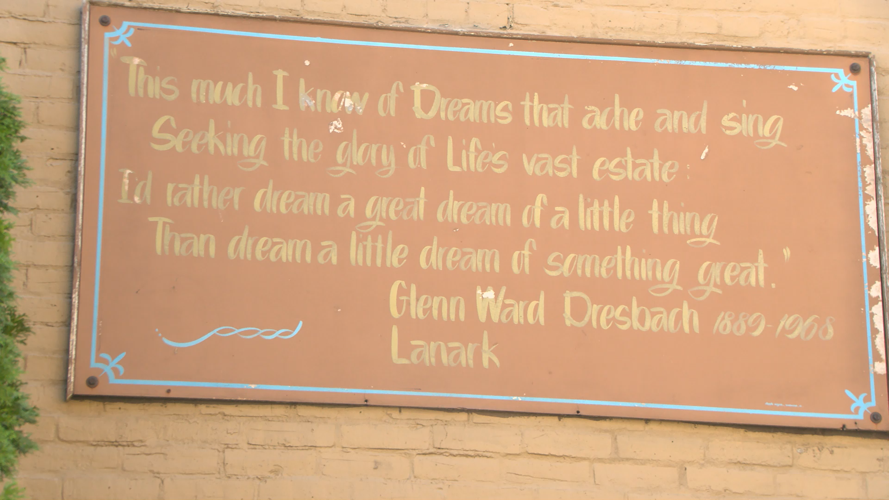 "This much I know of Dreams that ache and sing
Seeking the glory of Life's vast estate:
I'd rather dream a great dream of a little thing
Than dream a little dream of something great."
Glenn Ward Dresbach 1889-1968
Lanark